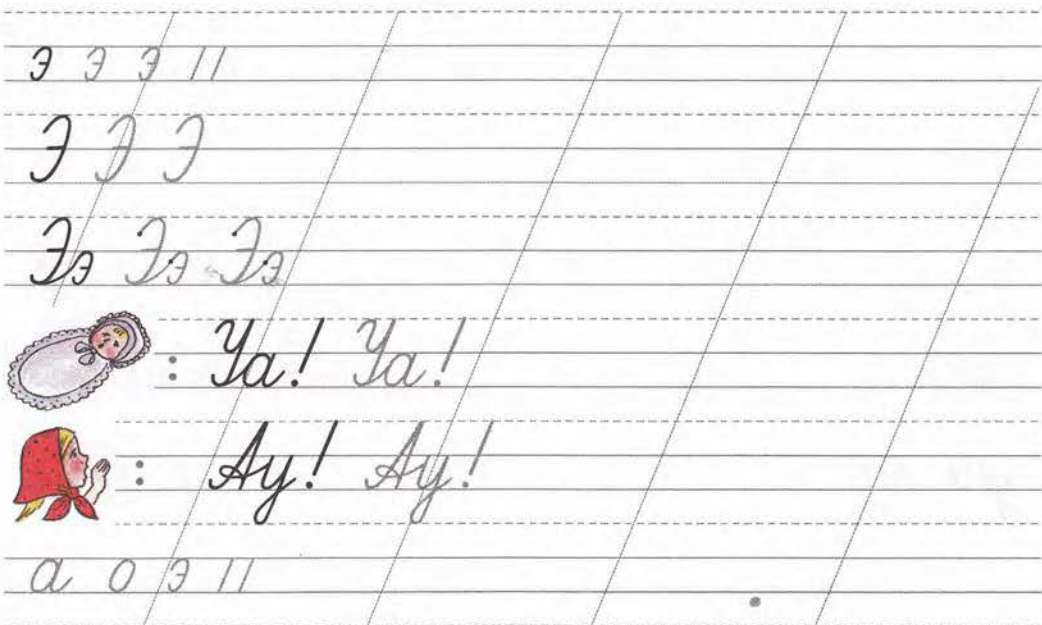 э э э //
Э Э Э
Ээ Ээ Ээ
: Уа! Уа!
: Ау! Ау!
а о э //